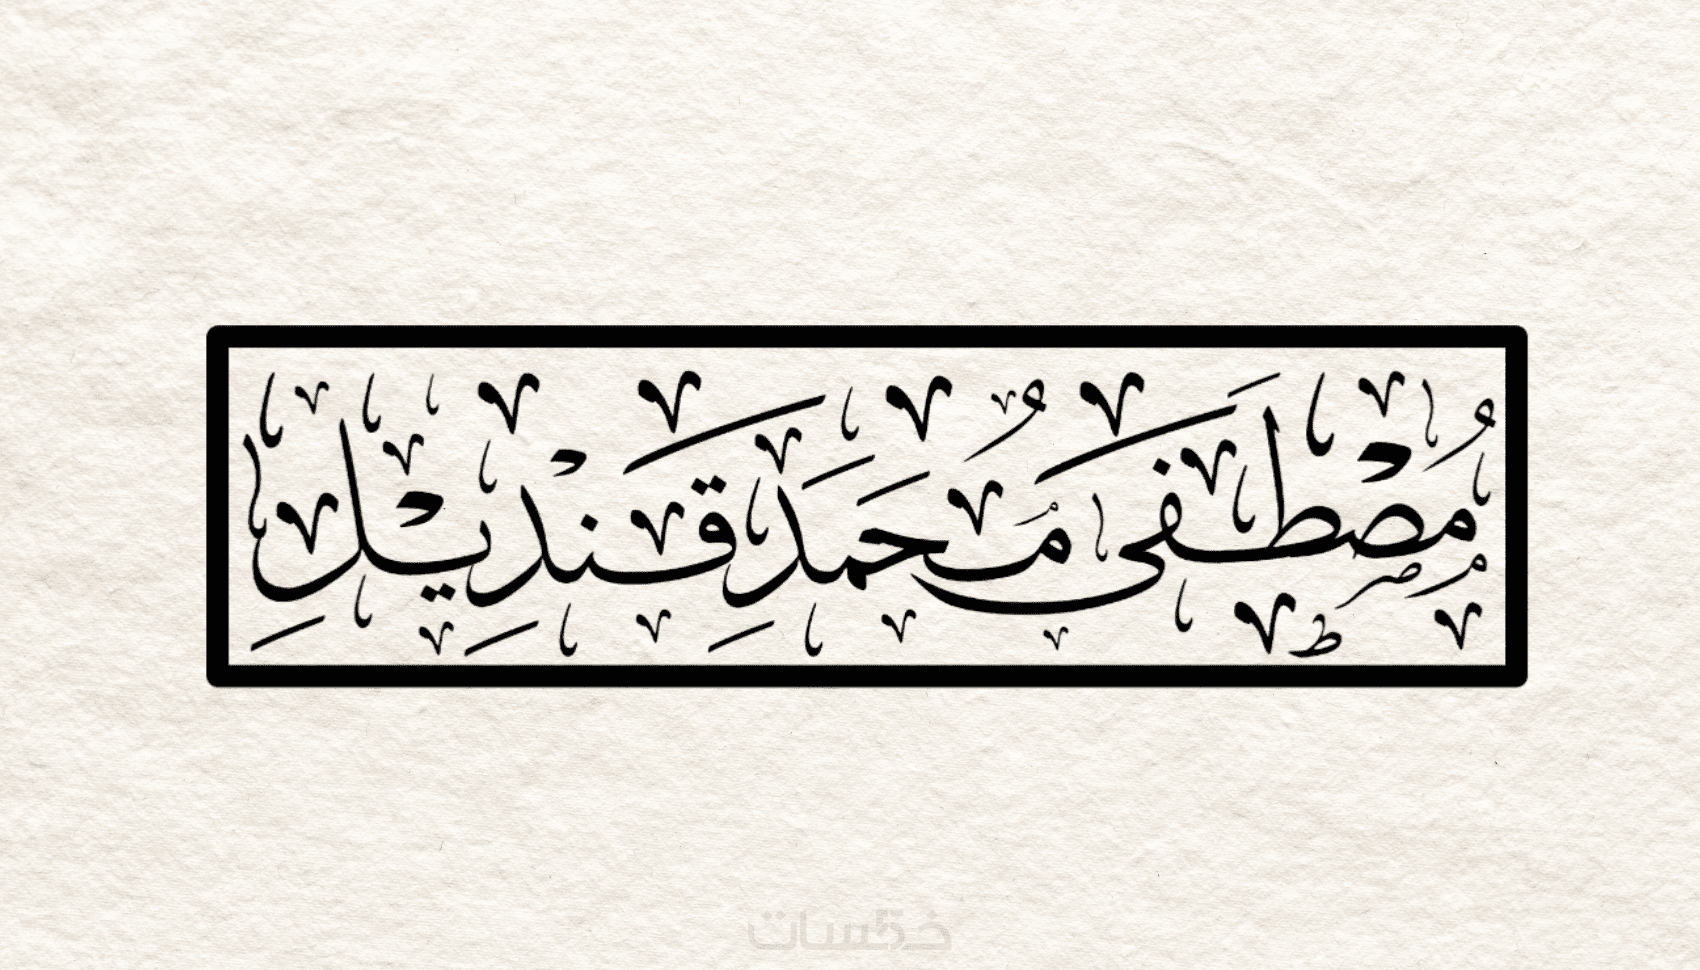 مُصْطَفى مُحَمَدِ قَنْدِيْلِ
خمسات